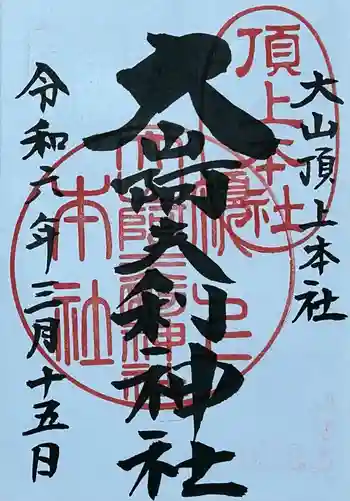 大山頂上本社
頂上本社
大山阿夫利神社
本社
令和六年三月十五日